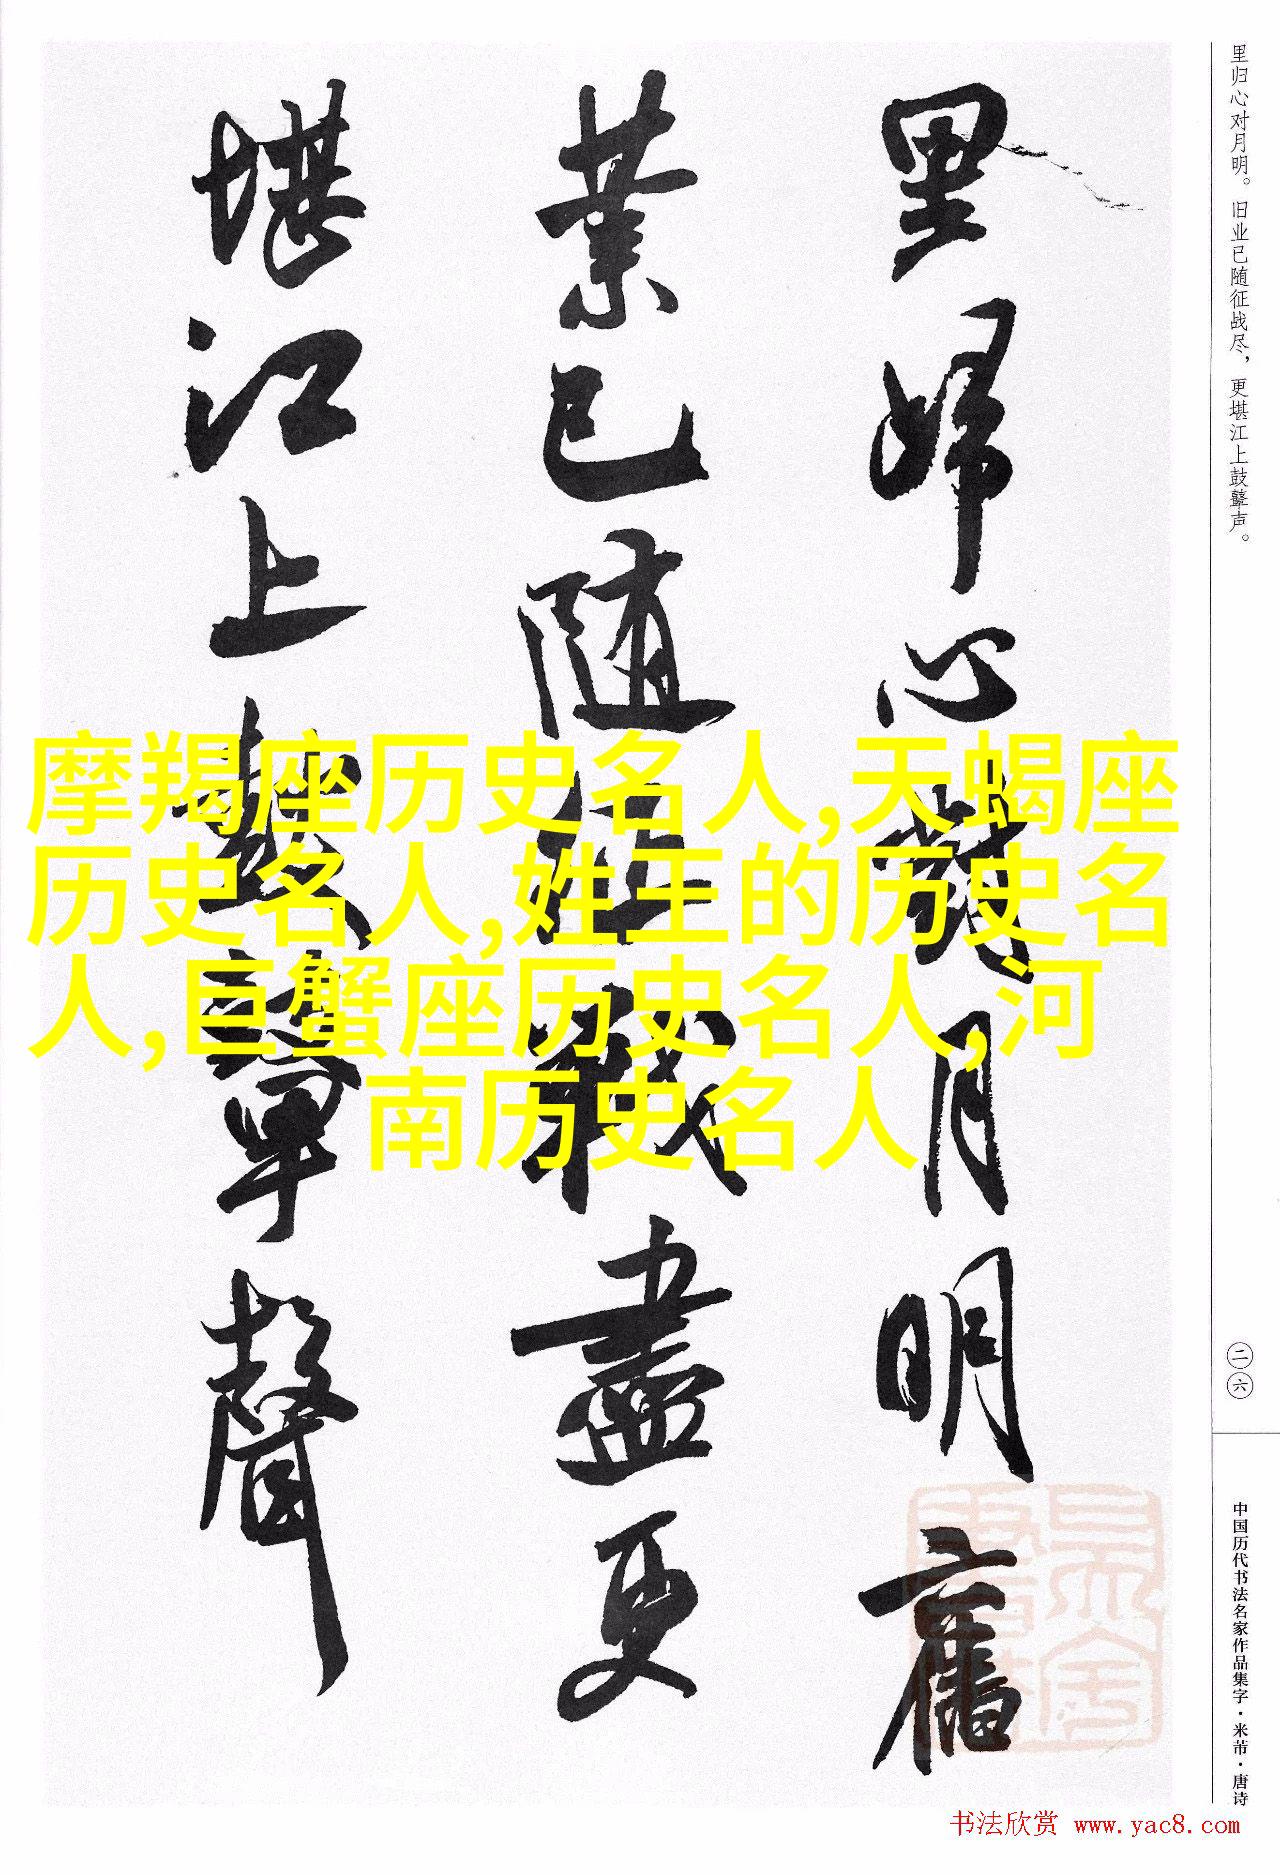 里归心对月明。旧业已随征战尽，更堪江上鼓鼙声。
里歸心對月明舊
業已隨征戰盡更
堪江上鼓鼙聲
摩羯座历史名人,天蝎座
历史名人,姓王的历史名
人,巨蟹座历史名人,河
南历史名人
二六
中国历代书法名家作品集字·米芾·唐诗
书法欣赏 www.yac8.com